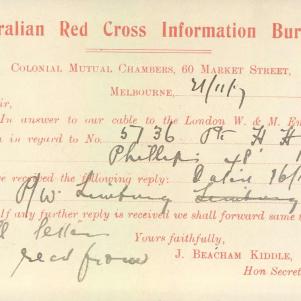 ralian Red Cross Information Bur
COLONIAL MUTUAL CHAMBERS, 60 MARKET STREET,
MELBOURNE, 21/11/17
ir,
In answer to our cable to the London W. & M. En
n in regard to No. 5736 Pte H H
Phillips 48
ve received the following reply: Dated 16/
P/W Limburg Limburg
If any further reply is received we shall forward same
letter Yours faithfully,
recd from J. BEACHAM KIDDLE,
Hon Secret